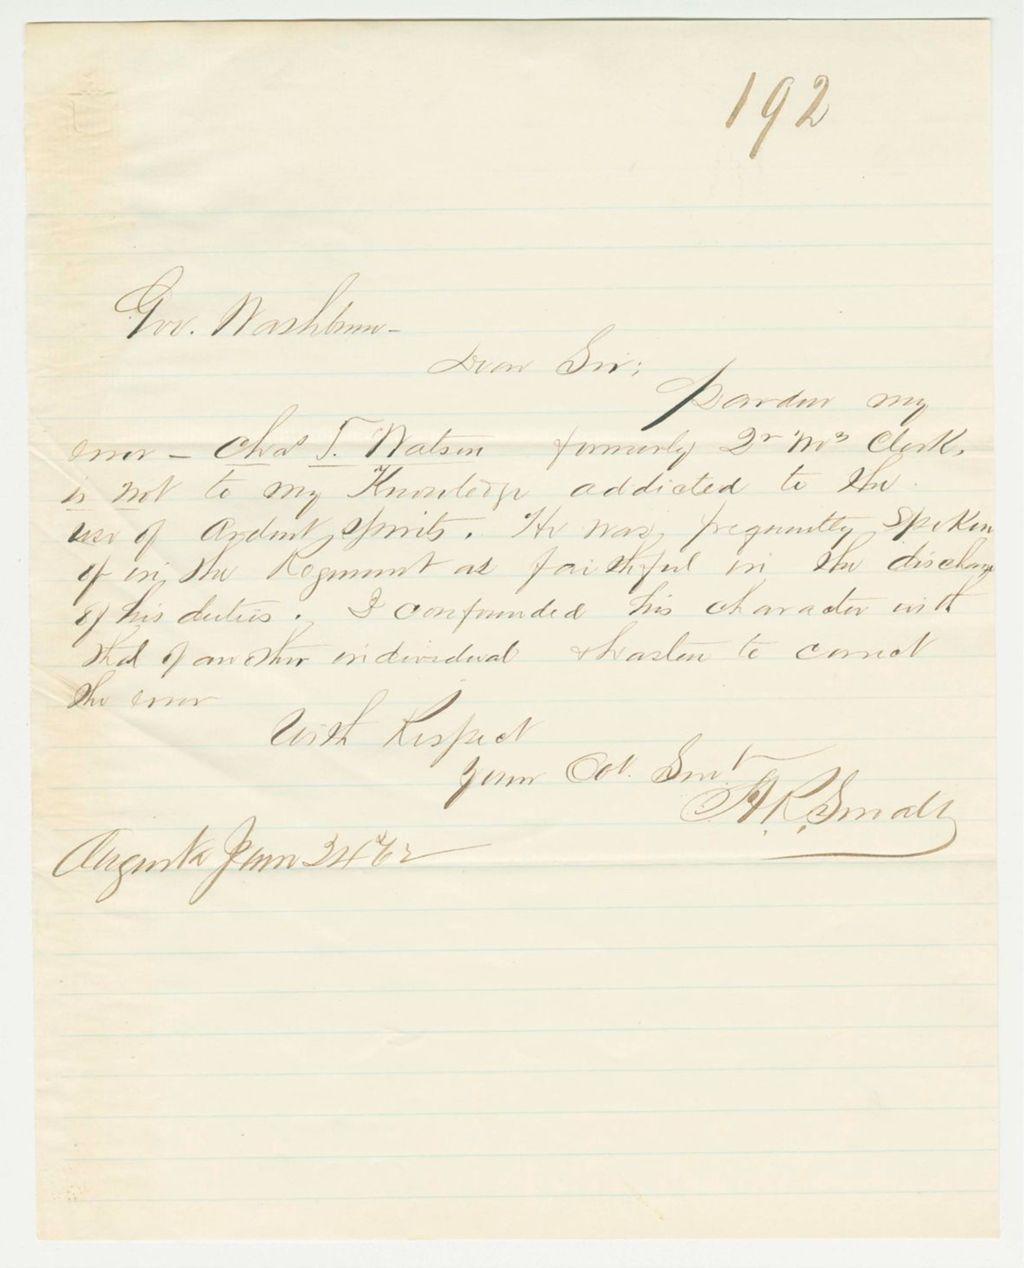 192
Gov. Washburn -
Dear Sir;
Pardon my
error - Chas T. Watson formerly Qr Mrs Clerk,
is not to my Knowledge addicted to the
use of Ardent spirits. He was frequently Spoken
of in the Regiment as faithful in the discharge
of his duties. I confounded his character with
that of another individual & hasten to correct
the error
With Respect
Your Obt. Svt
A. R. Small
Augusta Jan 24 62